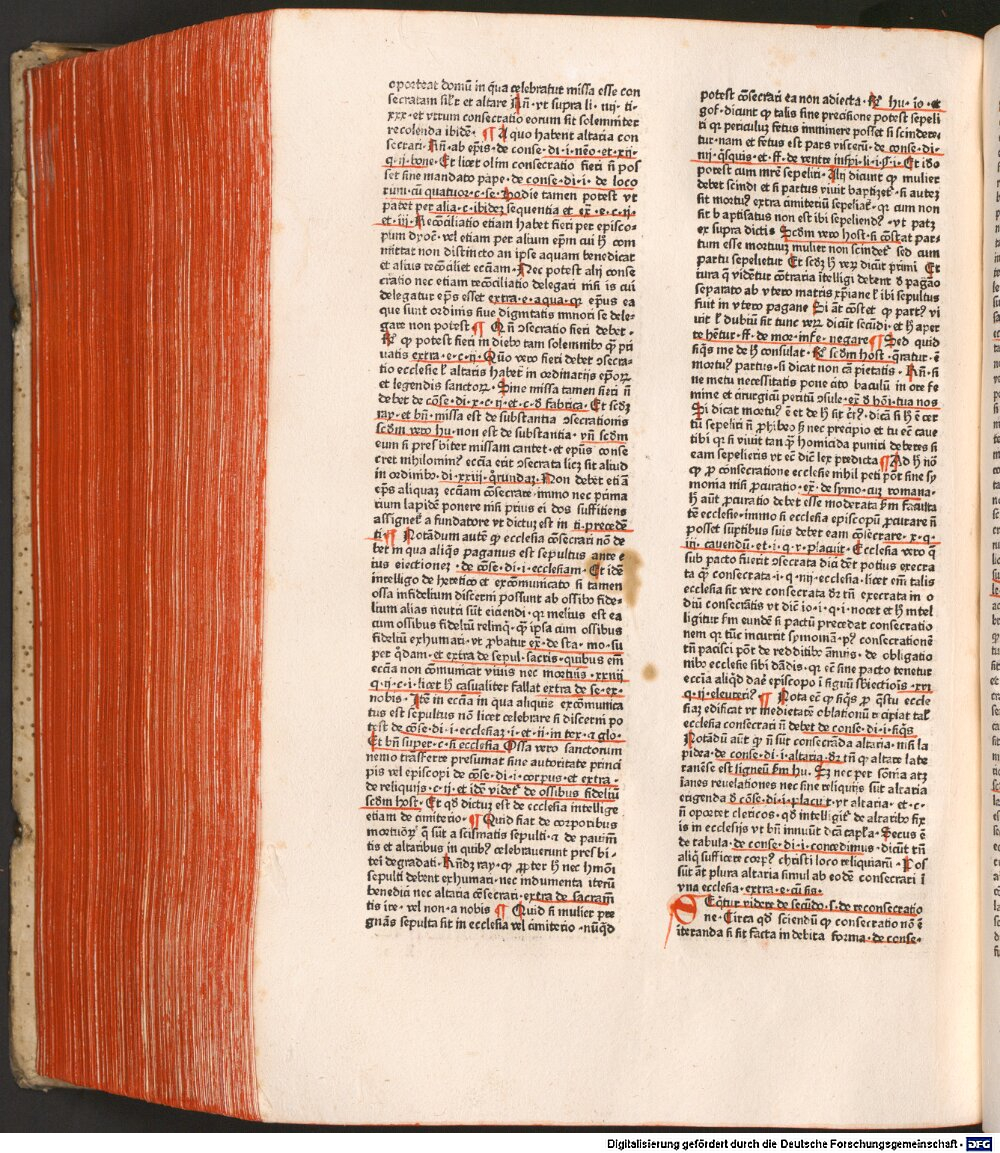 oporteat domū in q̄a celebratur missa esse con
secratam sil'r et altare R̄n̄·vt supra li·iiij·ti-
xxx·et vtrum consecratio eorum sit solemniter
recolenda ibidē·¶A quo habent altaria con
secrari·R̄n̄·ab ep̄is·de conse·di·i·nēo·et·xvi·
q·ij·bone·Et licet olim consecratio fieri n̄ pos
set sine mandato pape·de conse·di·i·de loco
rum·cū quatuor·c·se·hodie tamen potest vt
patet per alia·c·ibidez sequentia et ex̄·e·c·ij·
et·iij·Recōciliatio etiam habet fieri per episco-
pum dyoc̄·vel etiam per alium ep̄m cui ħ com
mittat non distincto an ipse aquam benedicat
et alius recōciliet eccl̄iam·Nec potest alij conse
cratio nec etiam recōciliatio delegari nisi is cui
delegatur ep̄s esset extra·e·aqua·qz ep̄us ea
que sunt ordinis siue dignitatis minori se dele-
gare non potest¶Qn̄ ↄsecratio fieri debet·
R̄· ꝙ potest fieri in diebꝰ tam solemnibꝰ q̄ pri
uatis extra·e·c·ij·Quō vero fieri debet ↄsecra-
tio ecclesie l' altaris habet in ordinarijs ep̄orꝝ
et legendis sanctorꝝ·Sine missa tamen fieri n̄
debet de cōse·di·x·c·ij·et·c·ð fabrica·Et scd'z
ray·et bn̄·missa est de substantia ↄsecrationis
scd̄m vero hu·non est de substantia·vn̄ scd̄m
eum si presbiter missam cantet·et ep̄us conse
cret nihilominꝰ eccl̄ia erit ↄsecrata licz sit aliud
in ordinibꝰ·di·xxiij·q̄rundaz·Non debet etiā
ep̄s aliquaz eccl̄iam cōsecrare·immo nec prima
rium lapidē ponere nisi prius ei dos sufficiens
assignet a fundatore vt dictuz est in ti·precedē
ti·¶Notādum autē ꝙ ecclesia cōsecrari nō de
bet in qua aliq̄s paganus est sepultus ante e
ius eiectionez·de cōse·di·i·ecclesiam·Et idē
intelligo de heretico et excōmunicato si tamen
ossa infidelium discerni possunt ab ossibꝰ fide-
lium alias neutri sūt eiciendi·qz melius est ea
cum ossibus fideliū relinq̄·q̄ ipsa cum ossibus
fideliū exhumari·vt ꝓbatur ex̄·de sta·mo·su
per q̄dam·et extra de sepul·sacris·quibus em̄
eccl̄ia non cōmunicat viuis nec mortuis·xxiiij
q·ij·c·i·licet ħ casualiter fallat extra de se·ex-
nobis·Itē in eccl̄ia in qua aliquis excōmunica
tus est sepultus nō licet celebrare si discerni po
test de cōse·di·i·ecclesiaz·i·et·ij·in tex·a glo·
Et bn̄ super·c·si ecclesia Ossa vero sanctorum
nemo trāsferre presumat sine autoritate princi
pis vel episcopi de cōse·di·i·corpus·et extra·
de reliquijs·c·ij·et idē videt' de ossibus fideliū
scd̄m host·Et qd̄ dictuz est de ecclesia intellige
etiam de cimiterio·¶Quid fiat de corporibus
mortuorꝝ q̄ sūt a scismatis sepulti·a de pauim̄
tis et altaribus in quibꝰ celebrauerunt presbi-
teri degradati·Rn̄dꝫ ray·ꝙ ꝓpter ħ nec hmōi
sepulti debent exhumari·nec indumenta iterū
benedici nec altaria cōsecrari·extra de sacram̄
tis ite·vel non·a nobis ¶Quid si mulier pre
gnās sepulta sit in ecclesia vel cimiterio·nūqd
potest cōsecrari ea non adiecta·R̄· hu·io·et
gof·dicunt ꝙ talis sine precisione potest sepeli
ri qz periculuz fetus imminere posset si scindere-
tur·nam et fetus est pars viscerū·de conse·di·
iiij·q̄squis·et·ff·de ventre inspi·l·i·§·i·Et ido
potest cum mr̄e sepeliri·Alij dicunt ꝙ mulier
debet scindi et si partus viuit baptizet'·si autez
sit mortuꝰ extra cimiteriū sepeliat'·qz cum non
sit baptisatus non est ibi sepeliendꝰ·vt patz
ex supra dictis Scd̄m vero host·si cōstat par-
tum esse mortuuz mulier non scindet' sed cum
partu sepelietur Et scd'z ħ verꝝ dicūt primi Et
iura q̄ videntur cōtraria ītelligi debent ð pagāo
separato ab vtero matris xp̄iane l' ibi sepultus
fuit in vtero pagane Si āt cōstet ꝙ partꝰ vi
uit l' dubiū sit tunc verꝝ dicūt secūdi·et ħ aper
te hētur·ff·de mor·infe·negare¶Sed quid
si q̄s me de ħ consulat·R̄·scd̄m host·q̄ratur·e
mortuꝰ partus·si dicat non cā pietatis·R̄n̄·si
ne metu necessitatis pone cito baculū in ore fe
mine et cirurgicū peritū ↄsule·ex̄·ð hōi·tua nos
Si dicat mortuꝰ ē et de ħ sit certꝰ·dicā si ħ ē cer
tū sepeliri n̄ ꝓhibeo ħ nec precipio et tu ec̄ caue
tibi qz si viuit tanq̄ homicida puniri deberes si
eam sepelieris vt ec̄ dic̄ lex predicta¶Ad ħ nō
ꝙ ꝓ consecratione ecclesie nihil peti pōt sine sy
monia nisi ꝓcuratio·ex̄·de symo·cuz romana·
ħ aūt ꝓcuratio debet esse moderata ẜm faculta
tē ecclesie·immo si ecclesia episcopū ꝓcurare n̄
posset sūptibus suis debet eam cōsecrare·x·q·
iij·cauendū·et·i·q·ī·placuit·Ecclesia vero q̄
sub pacto fuerit ↄsecrata dici dēt potius execra
ta q̄ consecrata·i·q·iiij·ecclesia·licet em̄ talis
ecclesia sit vere consecrata dz tn̄ execrata in o
diū consecrātis vt dic̄ io·i·q·i·nocet et ħ intel
ligitur ẜm eundē si pactū precedat consecratio
nem qz tūc incurrit symoniā·pꝰ consecrationē
tn̄ pacisci pōt de redditibꝰ ānuis·de obligatio
nibꝰ ecclesie sibi dādis·qz ec̄ sine pacto tenetur
eccl̄ia aliqd dare episcopo ī signū sbiectiōis·xvi
q·ij·eleuteriꝰ¶Nota ec̄ ꝙ siq̄s ꝓ q̄stu eccle
siaz edificat vt medietatē oblationū recipiat tal'
ecclesia consecrari n̄ debet de conse·di·i·siq̄s
Notādū aūt ꝙ n̄ sūt consecrāda altaria·nisi la
pidea·de conse·di·i·altaria·dz tn̄ ꝙ altare late
ranēse est ligneū ẜm hu·Sz nec per sōnia atz
īanes reuelationes nec sine reliquijs sūt altaria
erigenda ð cōse·di·i·placuit·vt altaria·et·c·
n̄ oportet clericos·qd̄ intelligit' de altaribꝰ fix
is in ecclesijs vt bn̄ innuūt dc̄a capl'a·Secus ē
de tabula·de conse·di·i·concedimus·dicūt tn̄
aliq̄ sufficere corpꝰ christi loco reliquiarū·Pos
sūt āt plura altaria simul ab eodē consecrari ī
vna ecclesia·extra·e·cū sis·
SEq̄tur videre de secūdo·s·de reconsecratio
ne·Circa qd̄ sciendū ꝙ consecratio nō ē
iteranda si sit facta in debita forma·de conse·
Digitalisierung gefördert durch die Deutsche Forschungsgemeinschaft - DFG